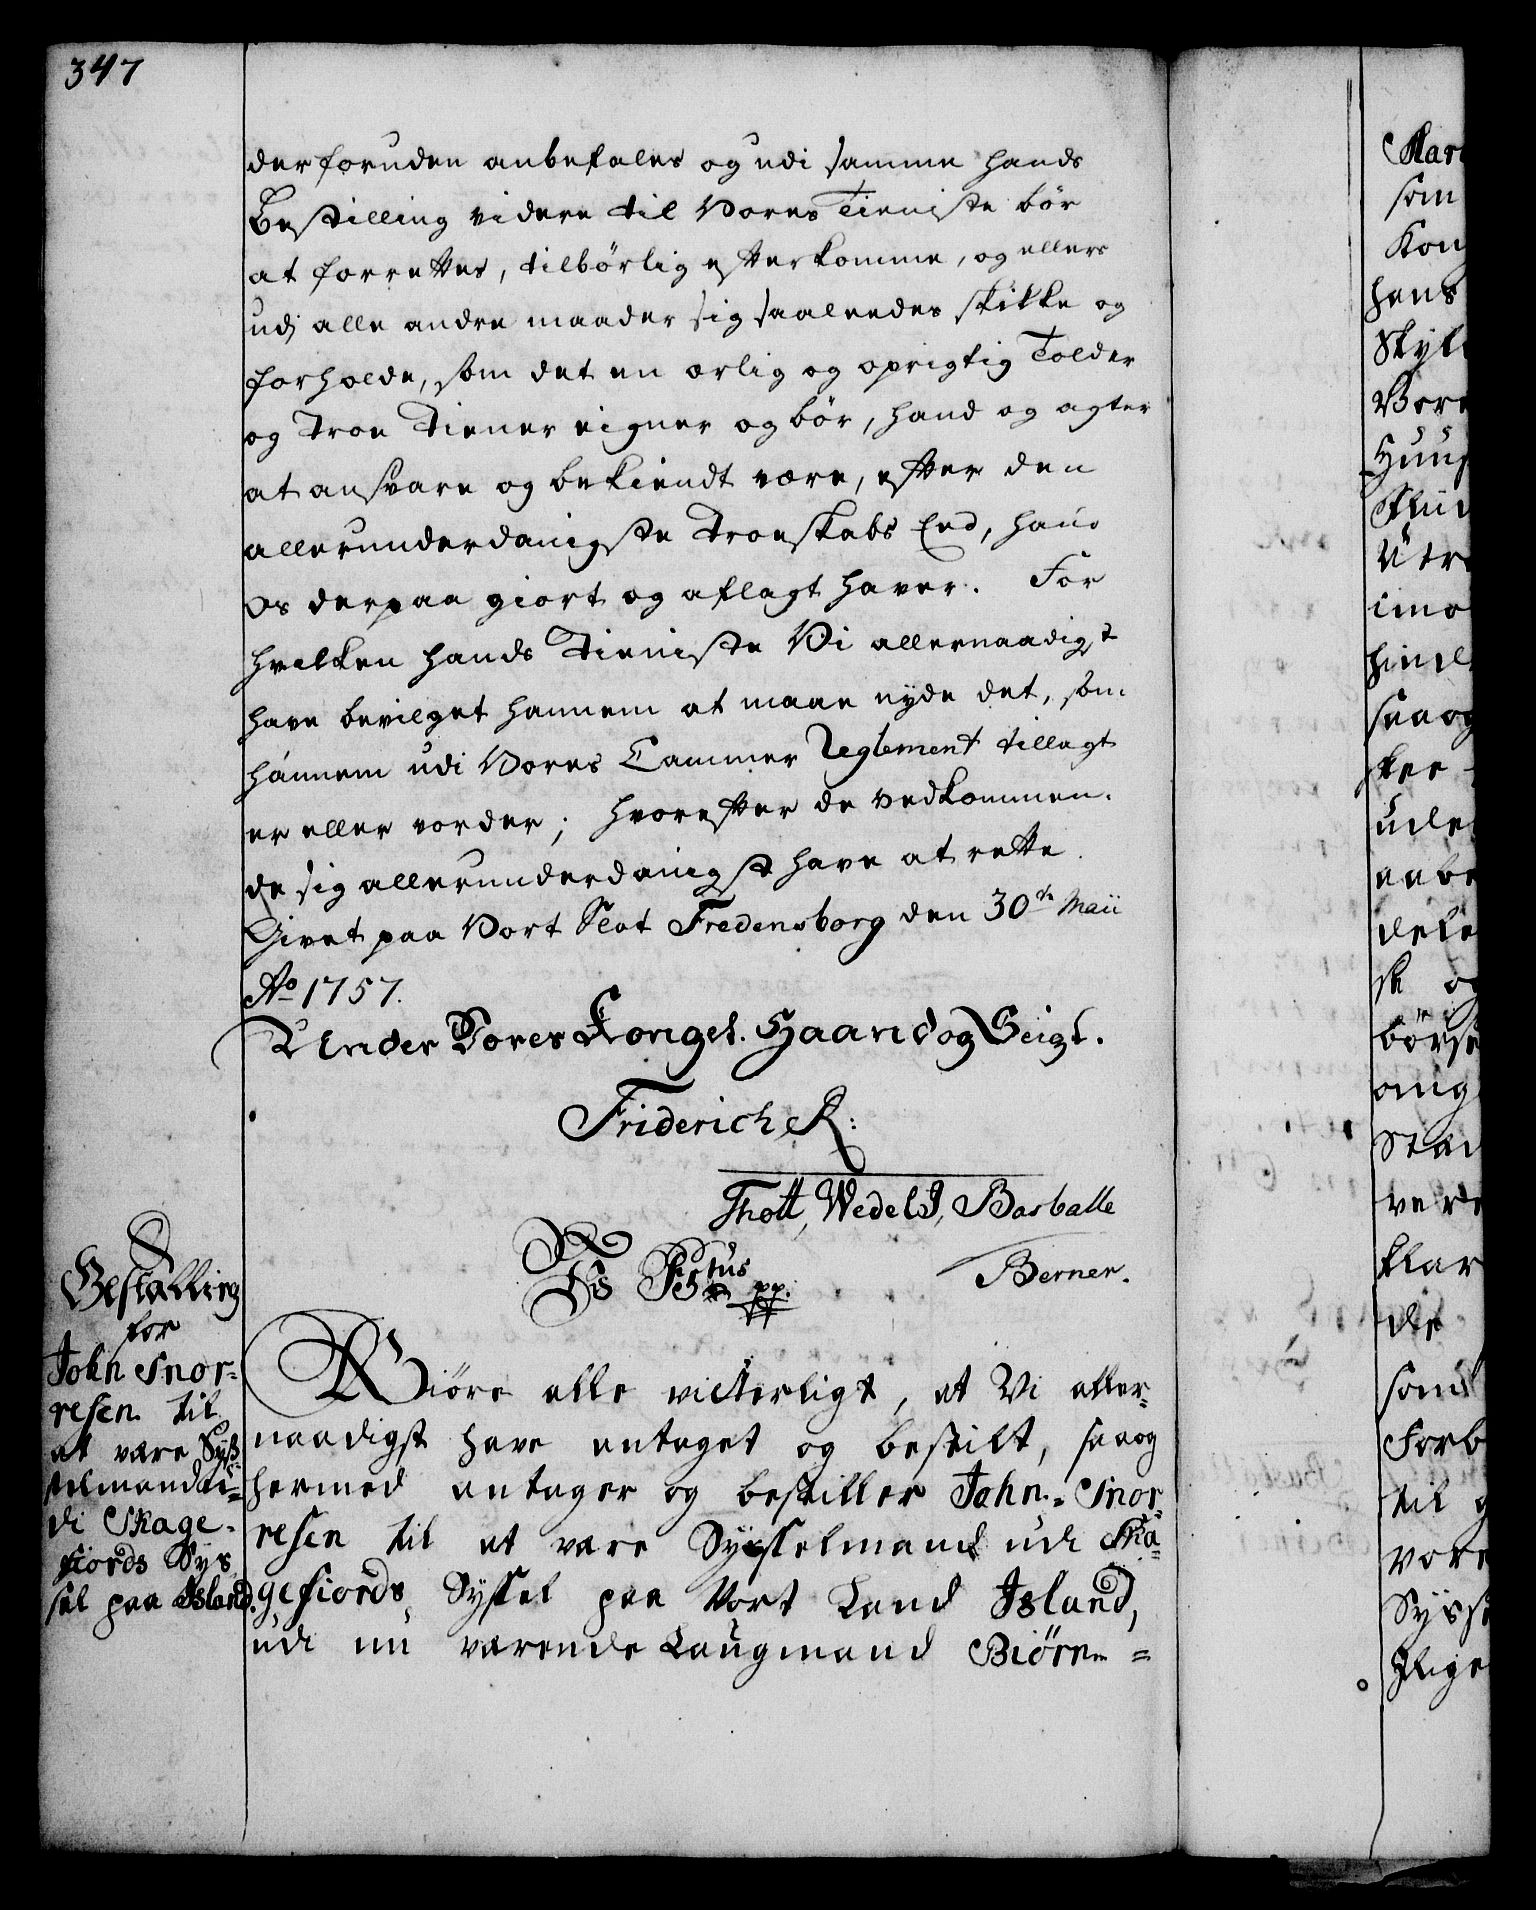 347
der foruden anbefales og udi samme hands
Bestilling videre til Vores Tieniste bör
at forrettes, tilbörlig efterkomme, og ellers
udj alle andre maader sig saaledes skikke og
forholde, som det en ærlig og oprigtig Tolder
og Troe Tiener eigner og bör, hand og agter
at ansvare og bekiendt være, efter den
allerunderdanigste Troeskabs Eed, hand
Os derpaa giort og aflagt haver. For
hvilken hands Tieniste Vi allernaadigst
have bevilget hannem at maae nyde det, som
hannem udi Vores Cammer Reglement tillagt
er eller vorder; hvorefter de vedkommen-
de sig allerunderdanigst have at rette.
Givet paa Vort Slot Fredensborg den 30te Maii
Ao 1757.
Under Vores Kongel. Haand og Seigl.
Friderich R:
Thott, Wedel J, Barballe
Berner.
Bestalling
for
John Snor-
resen til
at være Syss-
elmand u-
di Skage-
fiords Sys-
sel paa Island.
Vis F5tus pp.
Giöre alle vitterligt, at Vi aller-
naadigst have antaget og bestilt, saa og
hermed antager og bestiller John Snor-
resen til at være Sysselmand udi Ska-
gefiords Syssel paa Vort Land Island,
udi nu værende Laugmand Biörn =
Skar
som
Kon
hans
Skyl
Vore
Huus
imo
saaog
skee
ude
aabe
dele
sk og
börse
Stad
være
klar
de
som
Forb
til g
vore
Sysse
Flige